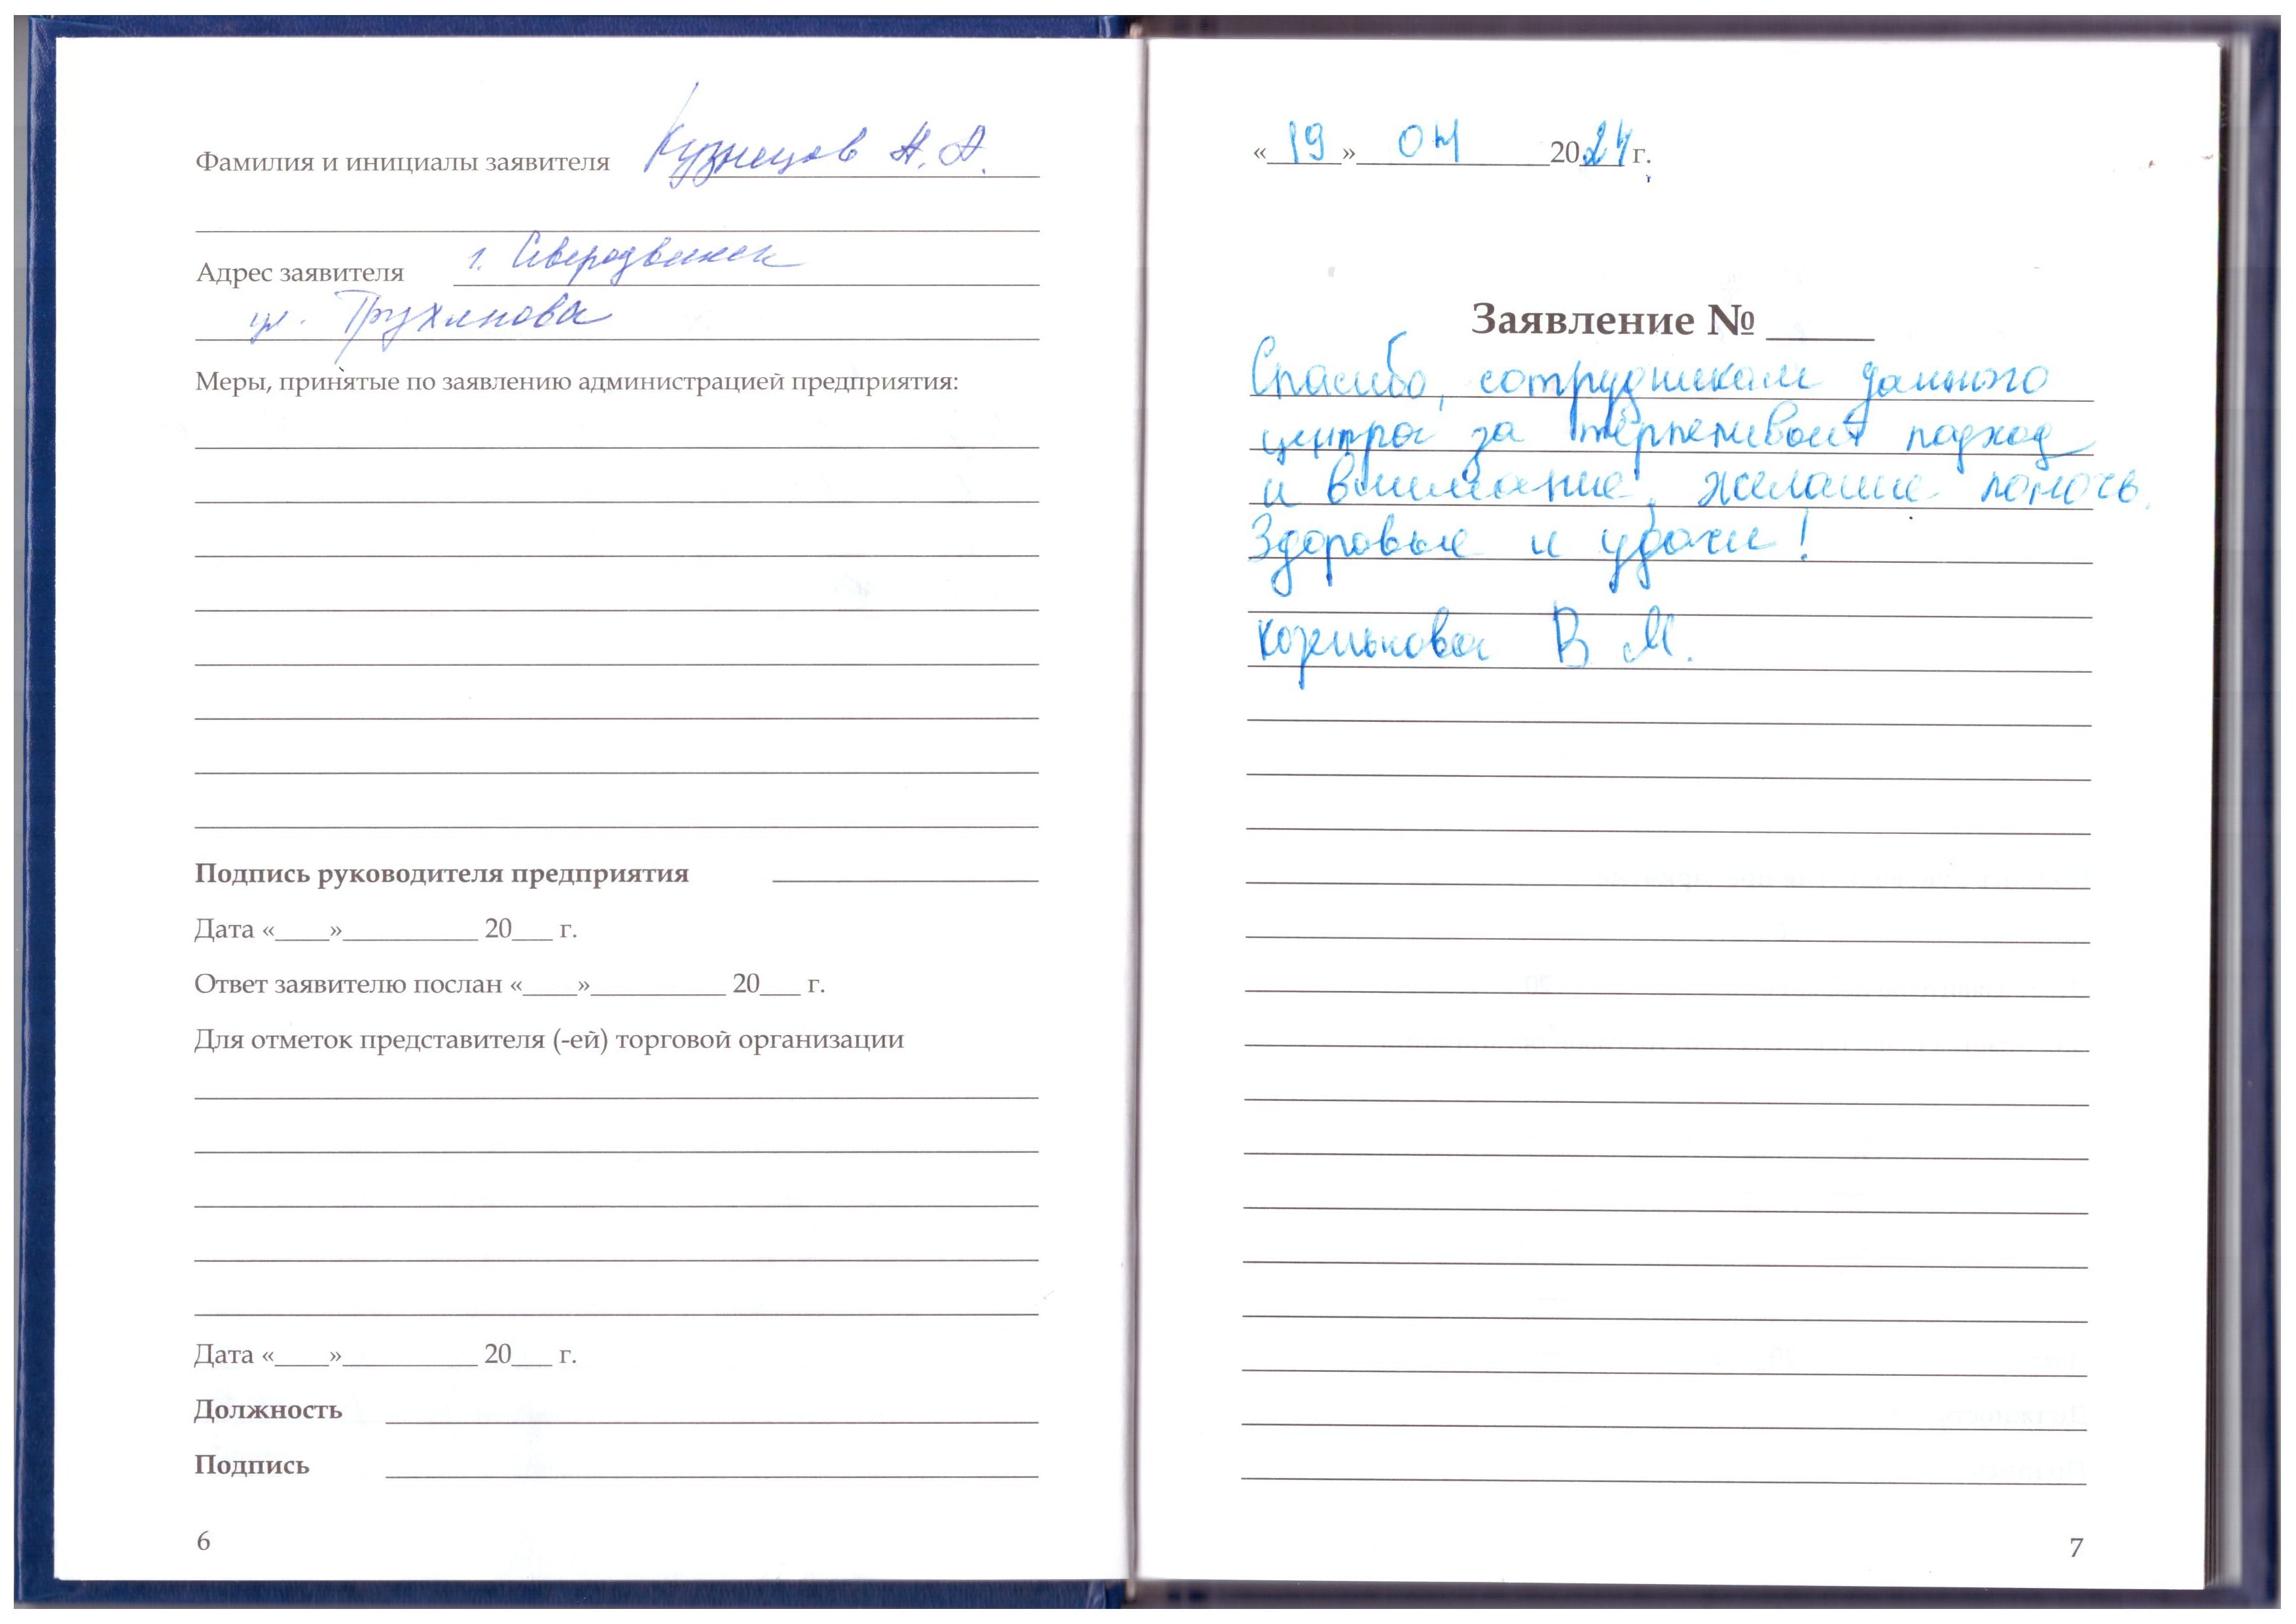 Фамилия и инициалы заявителя Кузнецов А. А.
Адрес заявителя г. Северодвинск
ул. Трухинова
Меры, принятые по заявлению администрацией предприятия:
Подпись руководителя предприятия
Дата «____»__________ 20___ г.
Ответ заявителю послан «____»__________ 20___ г.
Для отметок представителя (-ей) торговой организации
Дата «____»__________ 20___ г.
Должность
Подпись
6
«19» 04 2024 г.
Заявление № _____
Спасибо, сотрудникам данного
центра за терпеливый подход
и внимание, желание помочь.
Здоровье и удачи!
В М.
7